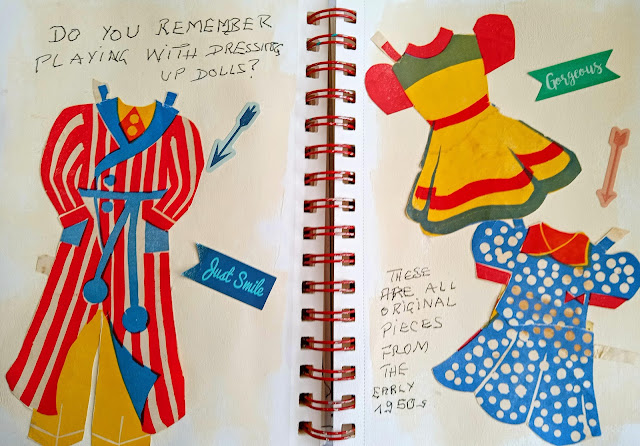 DO YOU REMEMBER
PLAYING WITH DRESSING
UP DOLLS?
Just Smile
Gorgeous
THESE
ARE ALL
ORIGINAL
PIECES
FROM
THE
EARLY
1950s